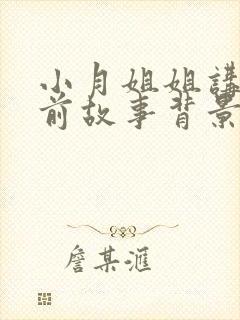 小月姐姐講
前故事背景
詹某滙